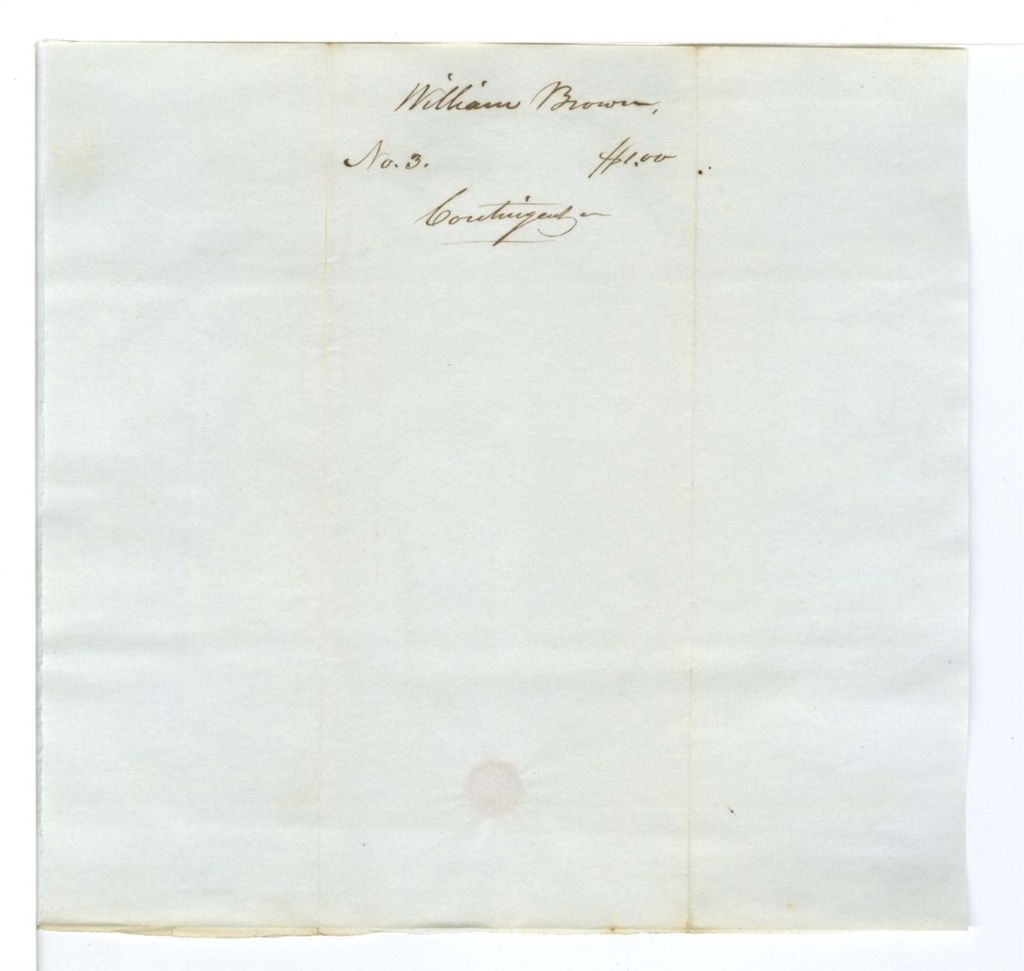 William Brown,
No. 3. $1.00
Contingent